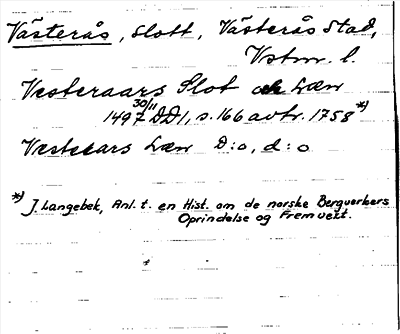 Västerås, slott, Västerås stad,
Vstm. l.
Vesteraars Slot och Læn
30/11
1497 DD1, s. 166 avtr. 1758 *)
Vesteears Læn D:o, d:o
*) J. Langebek, Anl. t. en Hist. om de norske Bergverkers
Oprindelse og Fremvext.